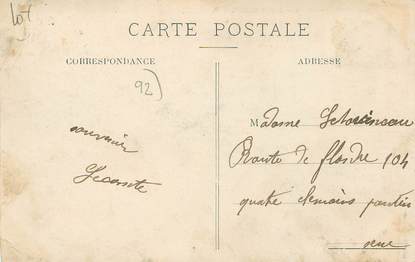 lot
CARTE POSTALE
CORRESPONDANCE
ADRESSE
92)
souvenir
Lecomte
Madame
Route de flandre 104
quatre chemins pantin
seine